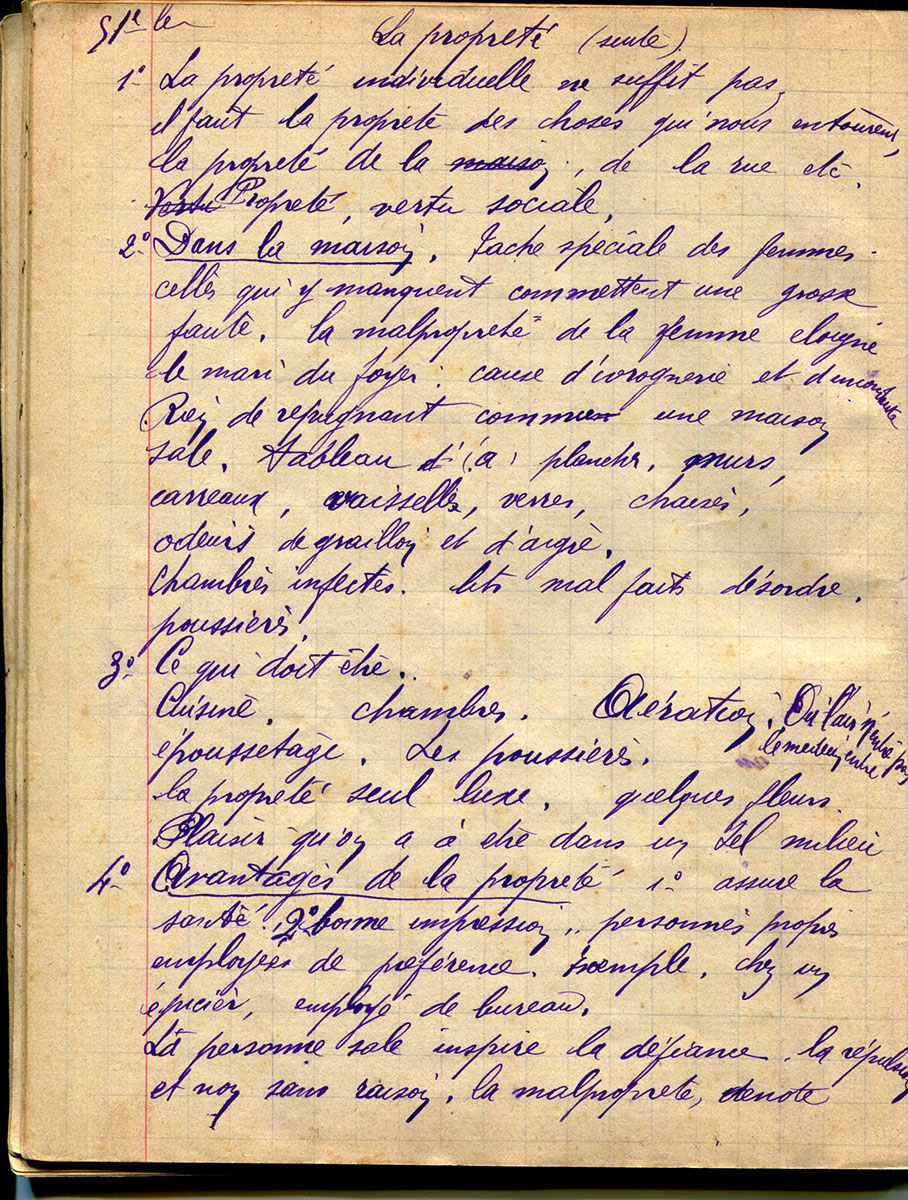 51e le
La propreté (suite)
1° La propreté individuelle ne suffit pas,
il faut la propreté des choses qui nous entourent,
la propreté de la maison, de la rue etc.
Vertu Propreté, vertu sociale.
2° Dans la maison. Tache spéciale des femmes
celles qui y manquent commettent une grosse
faute. la malpropreté de la femme eloigne
le mari du foyer : cause d'ivrognerie et d'inconduite
Rien de répugnant comme une maison
sale. tableau : planchr, murs,
carreaux, vaisselle, verres, chaises,
odeurs de graillon et d'aigre.
Chambres infectes. lits mal faits désordre.
poussières.
3° Ce qui doit être.
Cuisine. chambres. Aération. Où l'air n'entre pas
le médecin entre
époussetage. Les poussières.
la propreté seul luxe. quelques fleurs.
Plaisir qu'on a à etre dans un tel milieu
4° Avantages de la propreté 1° assure la
santé. 2° bonne impression, personnes propres
employées de préférence. exemple. chez un
épicier, employé de bureau.
La personne sale inspire la défiance. la répulsion
et non sans raison. la malpropreté, denote